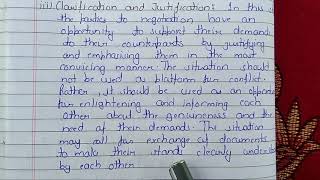 iii) Clarification and Justification: In this s
the parties to negotiation have an
opportunity to support their demands
to their counterparts by justifying
and emphasizing them in the most
convincing manner. The situation should
not be used as platform for conflict.
Rather, it should be used as an opportu
for enlightening and informing each
other about the genuineness and the
need of their demands. The situation
may call for exchange of documents
to make their stands clearly under
by each other.